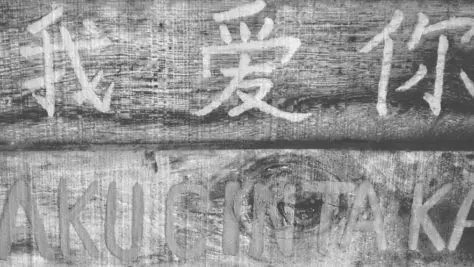 我爱你
AKU CINTA KA